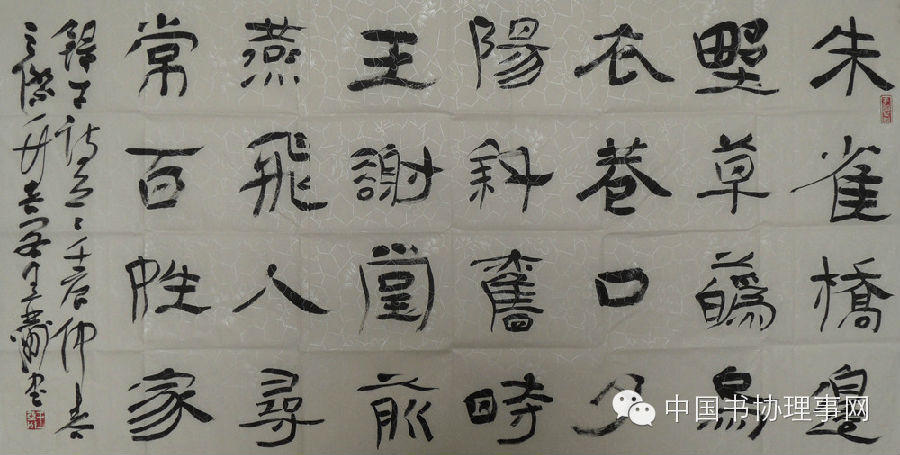 朱雀橋邊
野草蘤烏
衣巷口夕
陽斜舊時
王謝堂前
燕飛入尋
常百姓家
錄古詩 壬辰仲春
中国书协理事网